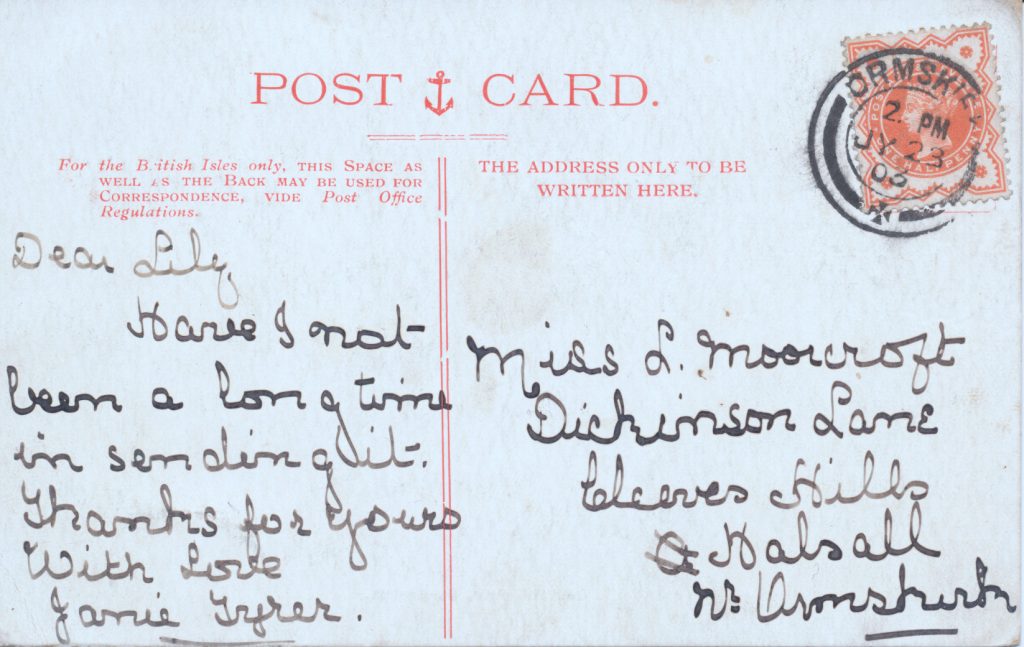 POST CARD.
For the British Isles only, THIS SPACE AS
WELL AS THE BACK MAY BE USED FOR
CORRESPONDENCE, VIDE Post Office
Regulations.
THE ADDRESS ONLY TO BE
WRITTEN HERE.
ORMSKIR
2. PM
JY 23
03
Dear Lily
Have I not
been a long time
in sending it.
Thanks for yours
With Love
Janie Tyrer.
Miss L. Moorcroft
Dickinson Lane
Cleeves Hills
Halsall
Nr Ormskirk